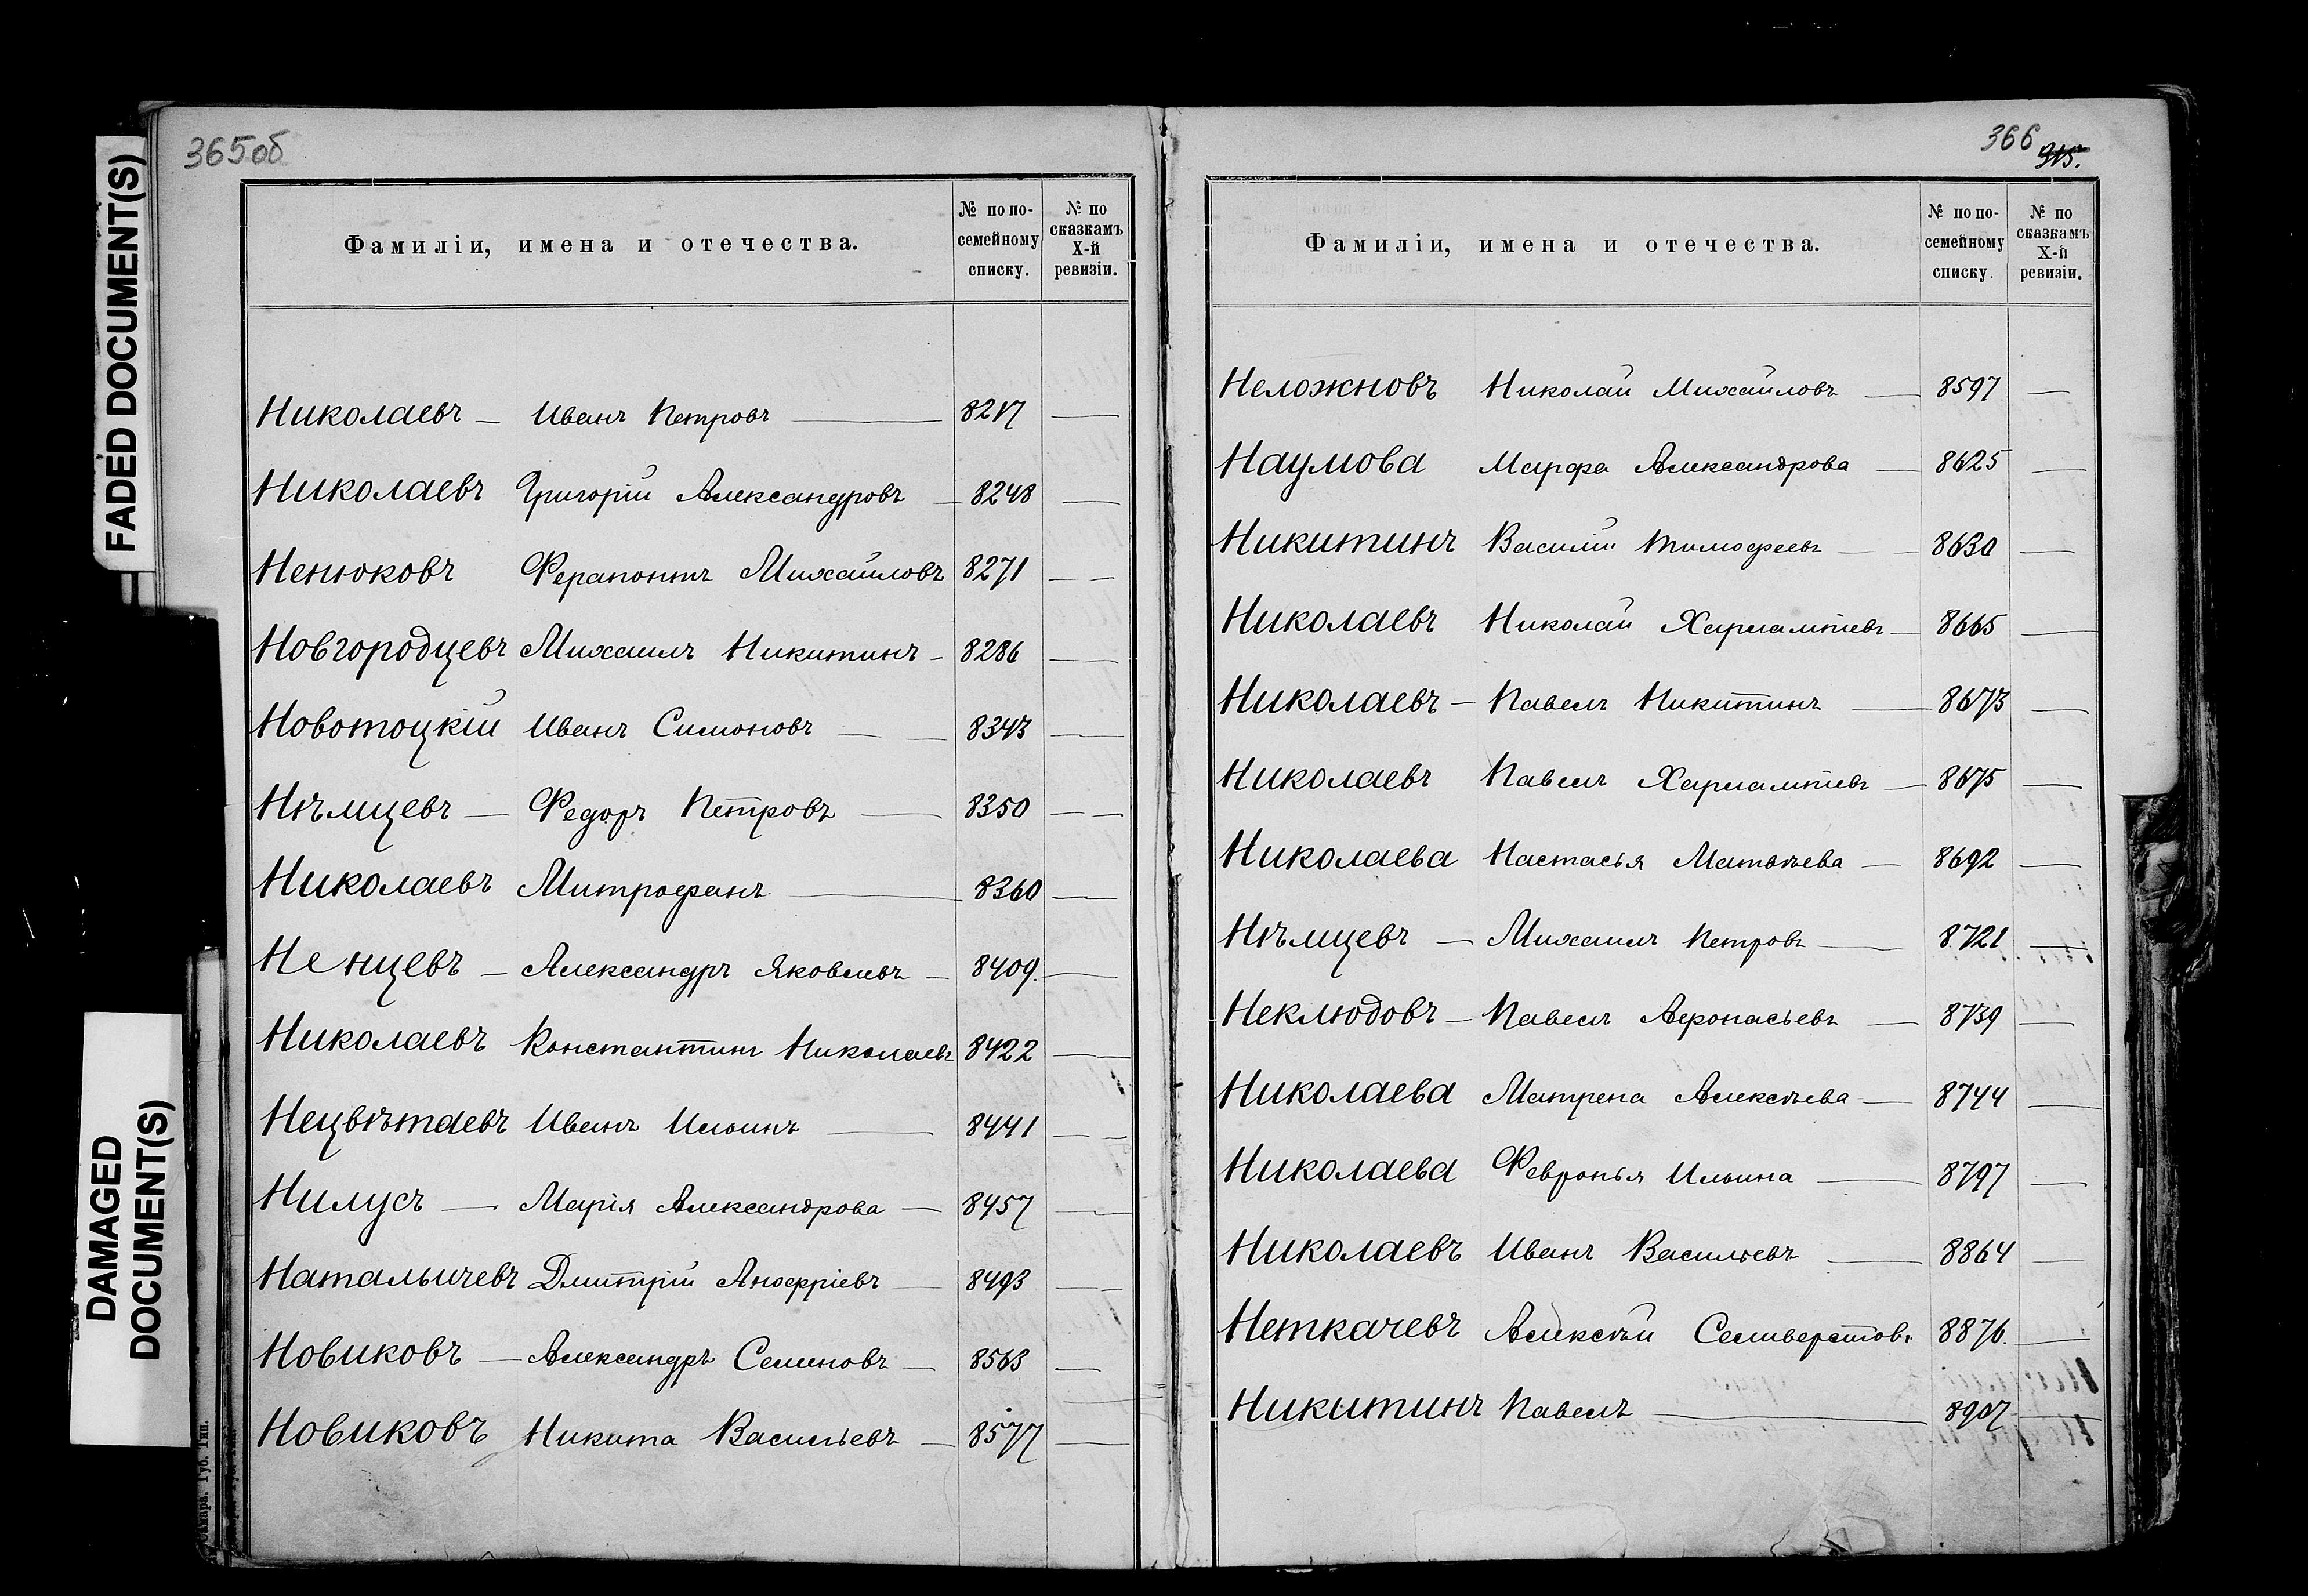 FADED DOCUMENT(S)
DAMAGED
DOCUMENT(S)
365об
Фамиліи, имена и отечества.
№ по по-
семейному
списку.
№ по
сказкамъ
X-й
ревизіи.
Николаевъ — Иванъ Петровъ — 8217 —
Николаевъ Григорій Александровъ — 8248 —
Ненюковъ Ферапонтъ Михайловъ 8271 — —
Новгородцевъ Михаилъ Никитинъ — 8286 —
Новотоцкій Иванъ Симоновъ — — 8343 —
Нѣмцевъ — Федоръ Петровъ — 8350 — —
Николаевъ Митрофанъ — 8360 —
Ненцевъ — Александръ Яковлевъ — 8409. —
Николаевъ Константинъ Николаевъ 8422 —
Нецвѣтаевъ Иванъ Ильинъ — 8441 — —
Нилусъ — Марія Александрова — 8457 —
Натальичевъ Дмитрій Анофріевъ — 8493 —
Новиковъ — Александръ Семеновъ — 8563 —
Новиковъ Никита Васильевъ — 8577 —
Самара. Губ. Тип.
366
315.
Фамиліи, имена и отечества.
№ по по-
семейному
списку.
№ по
сказкамъ
X-й
ревизіи.
Неложновъ Николай Михайловъ — 8597 —
Наумова Марфа Александрова — 8625 —
Никитинъ Василій Тимофеевъ — 8630 —
Николаевъ Николай Харлампіевъ — 8665 —
Николаевъ — Павелъ Никитинъ — 8673 —
Николаевъ Павелъ Харлампіевъ — 8675 —
Николаева Настасья Матвѣева — 8692 —
Нѣмцевъ — Михаилъ Петровъ — 8721 —
Неклюдовъ — Павелъ Афонасьевъ — 8739 —
Николаева Матрена Алексѣева — 8744 —
Николаева Февронья Ильина — 8797 —
Николаевъ Иванъ Васильевъ — 8864 —
Неткачевъ Алексѣй Селиверстовъ 8876. —
Никитинъ Павелъ — 8907 —